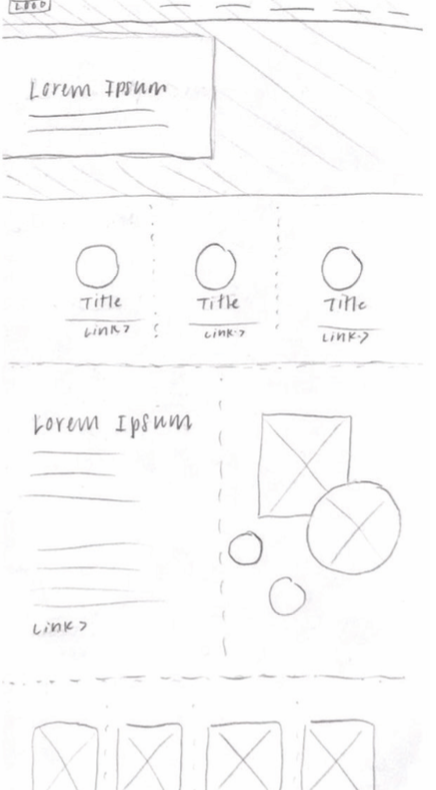 LOGO
Lorem Ipsum
Title Title Title
Link> Link> Link>
Lorem Ipsum
Link>